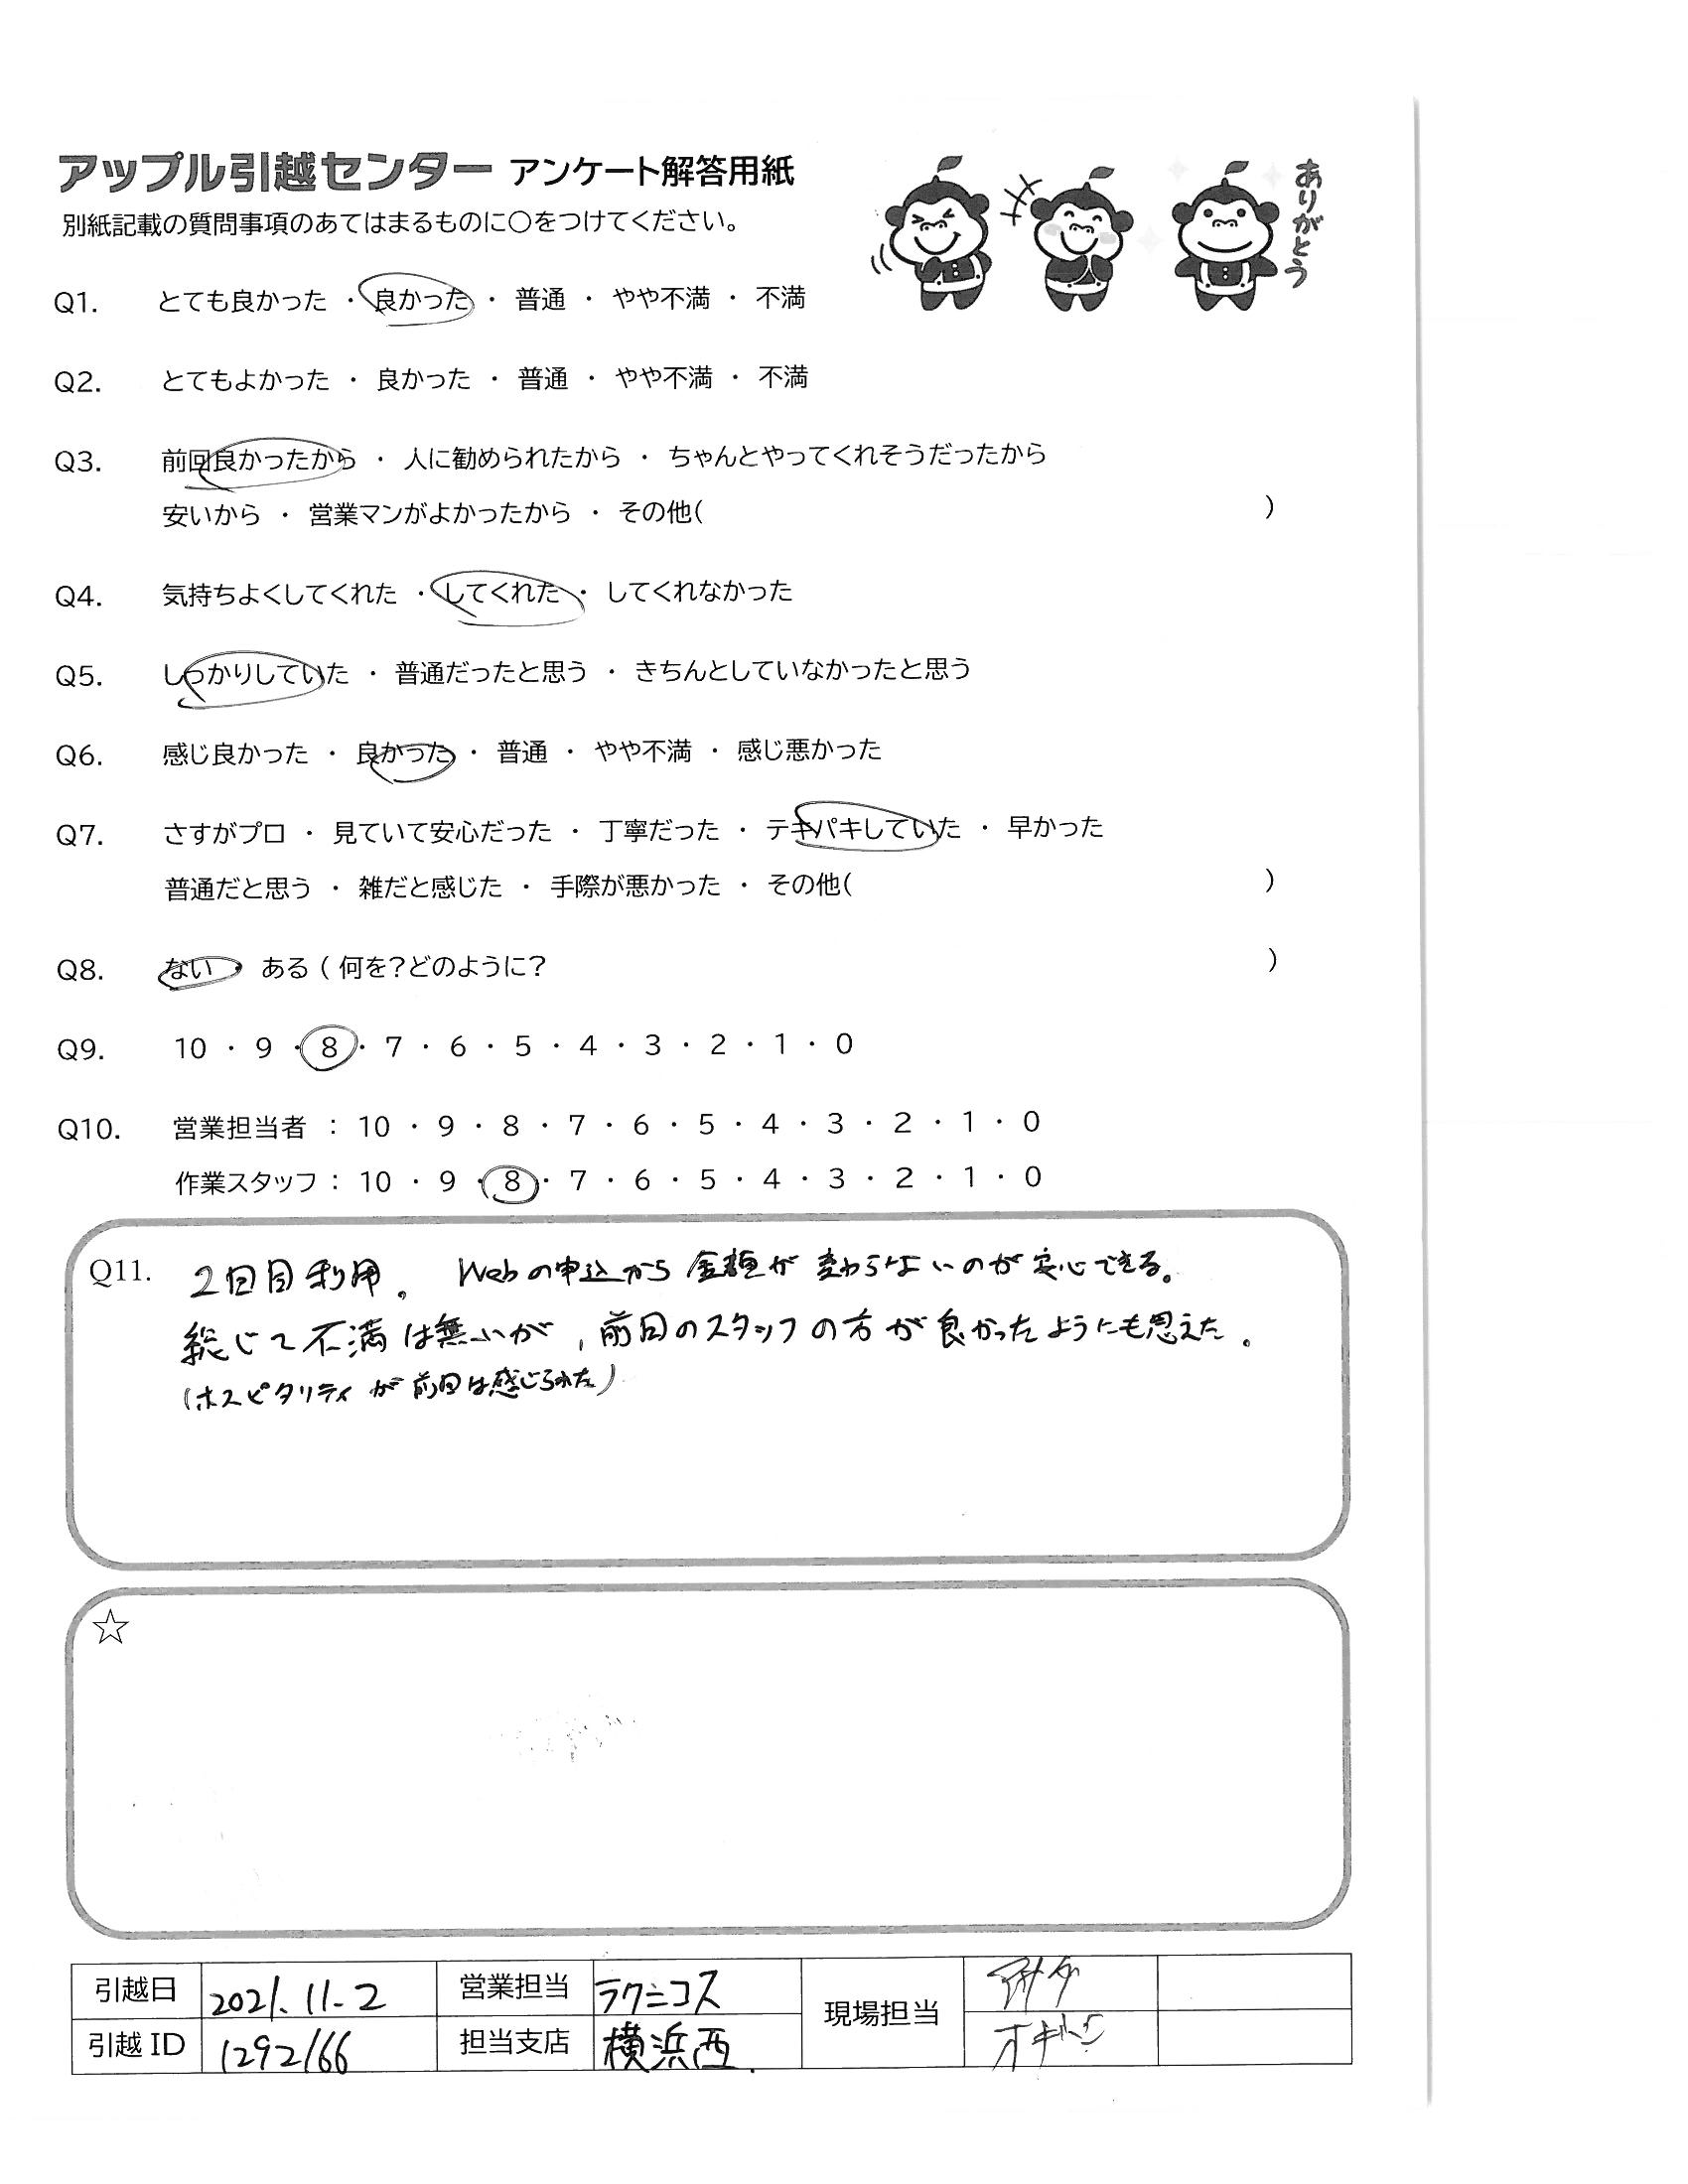 アップル引越センター アンケート解答用紙
ありがとう
別紙記載の質問事項のあてはまるものに○をつけてください。
Q1. とても良かった ・ 良かった ・ 普通 ・ やや不満 ・ 不満
Q2. とてもよかった ・ 良かった ・ 普通 ・ やや不満 ・ 不満
Q3. 前回良かったから ・ 人に勧められたから ・ ちゃんとやってくれそうだったから
安いから ・ 営業マンがよかったから ・ その他( )
Q4. 気持ちよくしてくれた ・ してくれた ・ してくれなかった
Q5. しっかりしていた ・ 普通だったと思う ・ きちんとしていなかったと思う
Q6. 感じ良かった ・ 良かった ・ 普通 ・ やや不満 ・ 感じ悪かった
Q7. さすがプロ ・ 見ていて安心だった ・ 丁寧だった ・ テキパキしていた ・ 早かった
普通だと思う ・ 雑だと感じた ・ 手際が悪かった ・ その他( )
Q8. ない ・ ある ( 何を?どのように? )
Q9. 10 ・ 9 ・ 8 ・ 7 ・ 6 ・ 5 ・ 4 ・ 3 ・ 2 ・ 1 ・ 0
Q10. 営業担当者 : 10 ・ 9 ・ 8 ・ 7 ・ 6 ・ 5 ・ 4 ・ 3 ・ 2 ・ 1 ・ 0
作業スタッフ : 10 ・ 9 ・ 8 ・ 7 ・ 6 ・ 5 ・ 4 ・ 3 ・ 2 ・ 1 ・ 0
Q11. 2回目利用。 Webの申込から金額が変わらないのが安心できる。
総じて不満は無いが、前回のスタッフの方が良かったようにも思えた。
(ホスピタリティが前回は感じられた)
☆
引越日 2021.11.2 営業担当 ラクニコス 現場担当
引越ID 1292166 担当支店 横浜西.